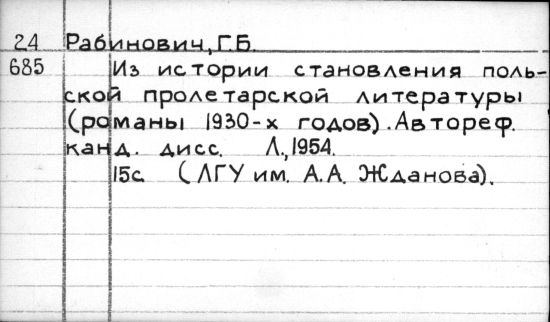 24 Рабинович, Г.Б.
685 Из истории становления поль-
ской пролетарской литературы
(романы 1930-х годов). Автореф.
канд. дисс. Л., 1954.
15с. (ЛГУ им. А.А. Жданова).